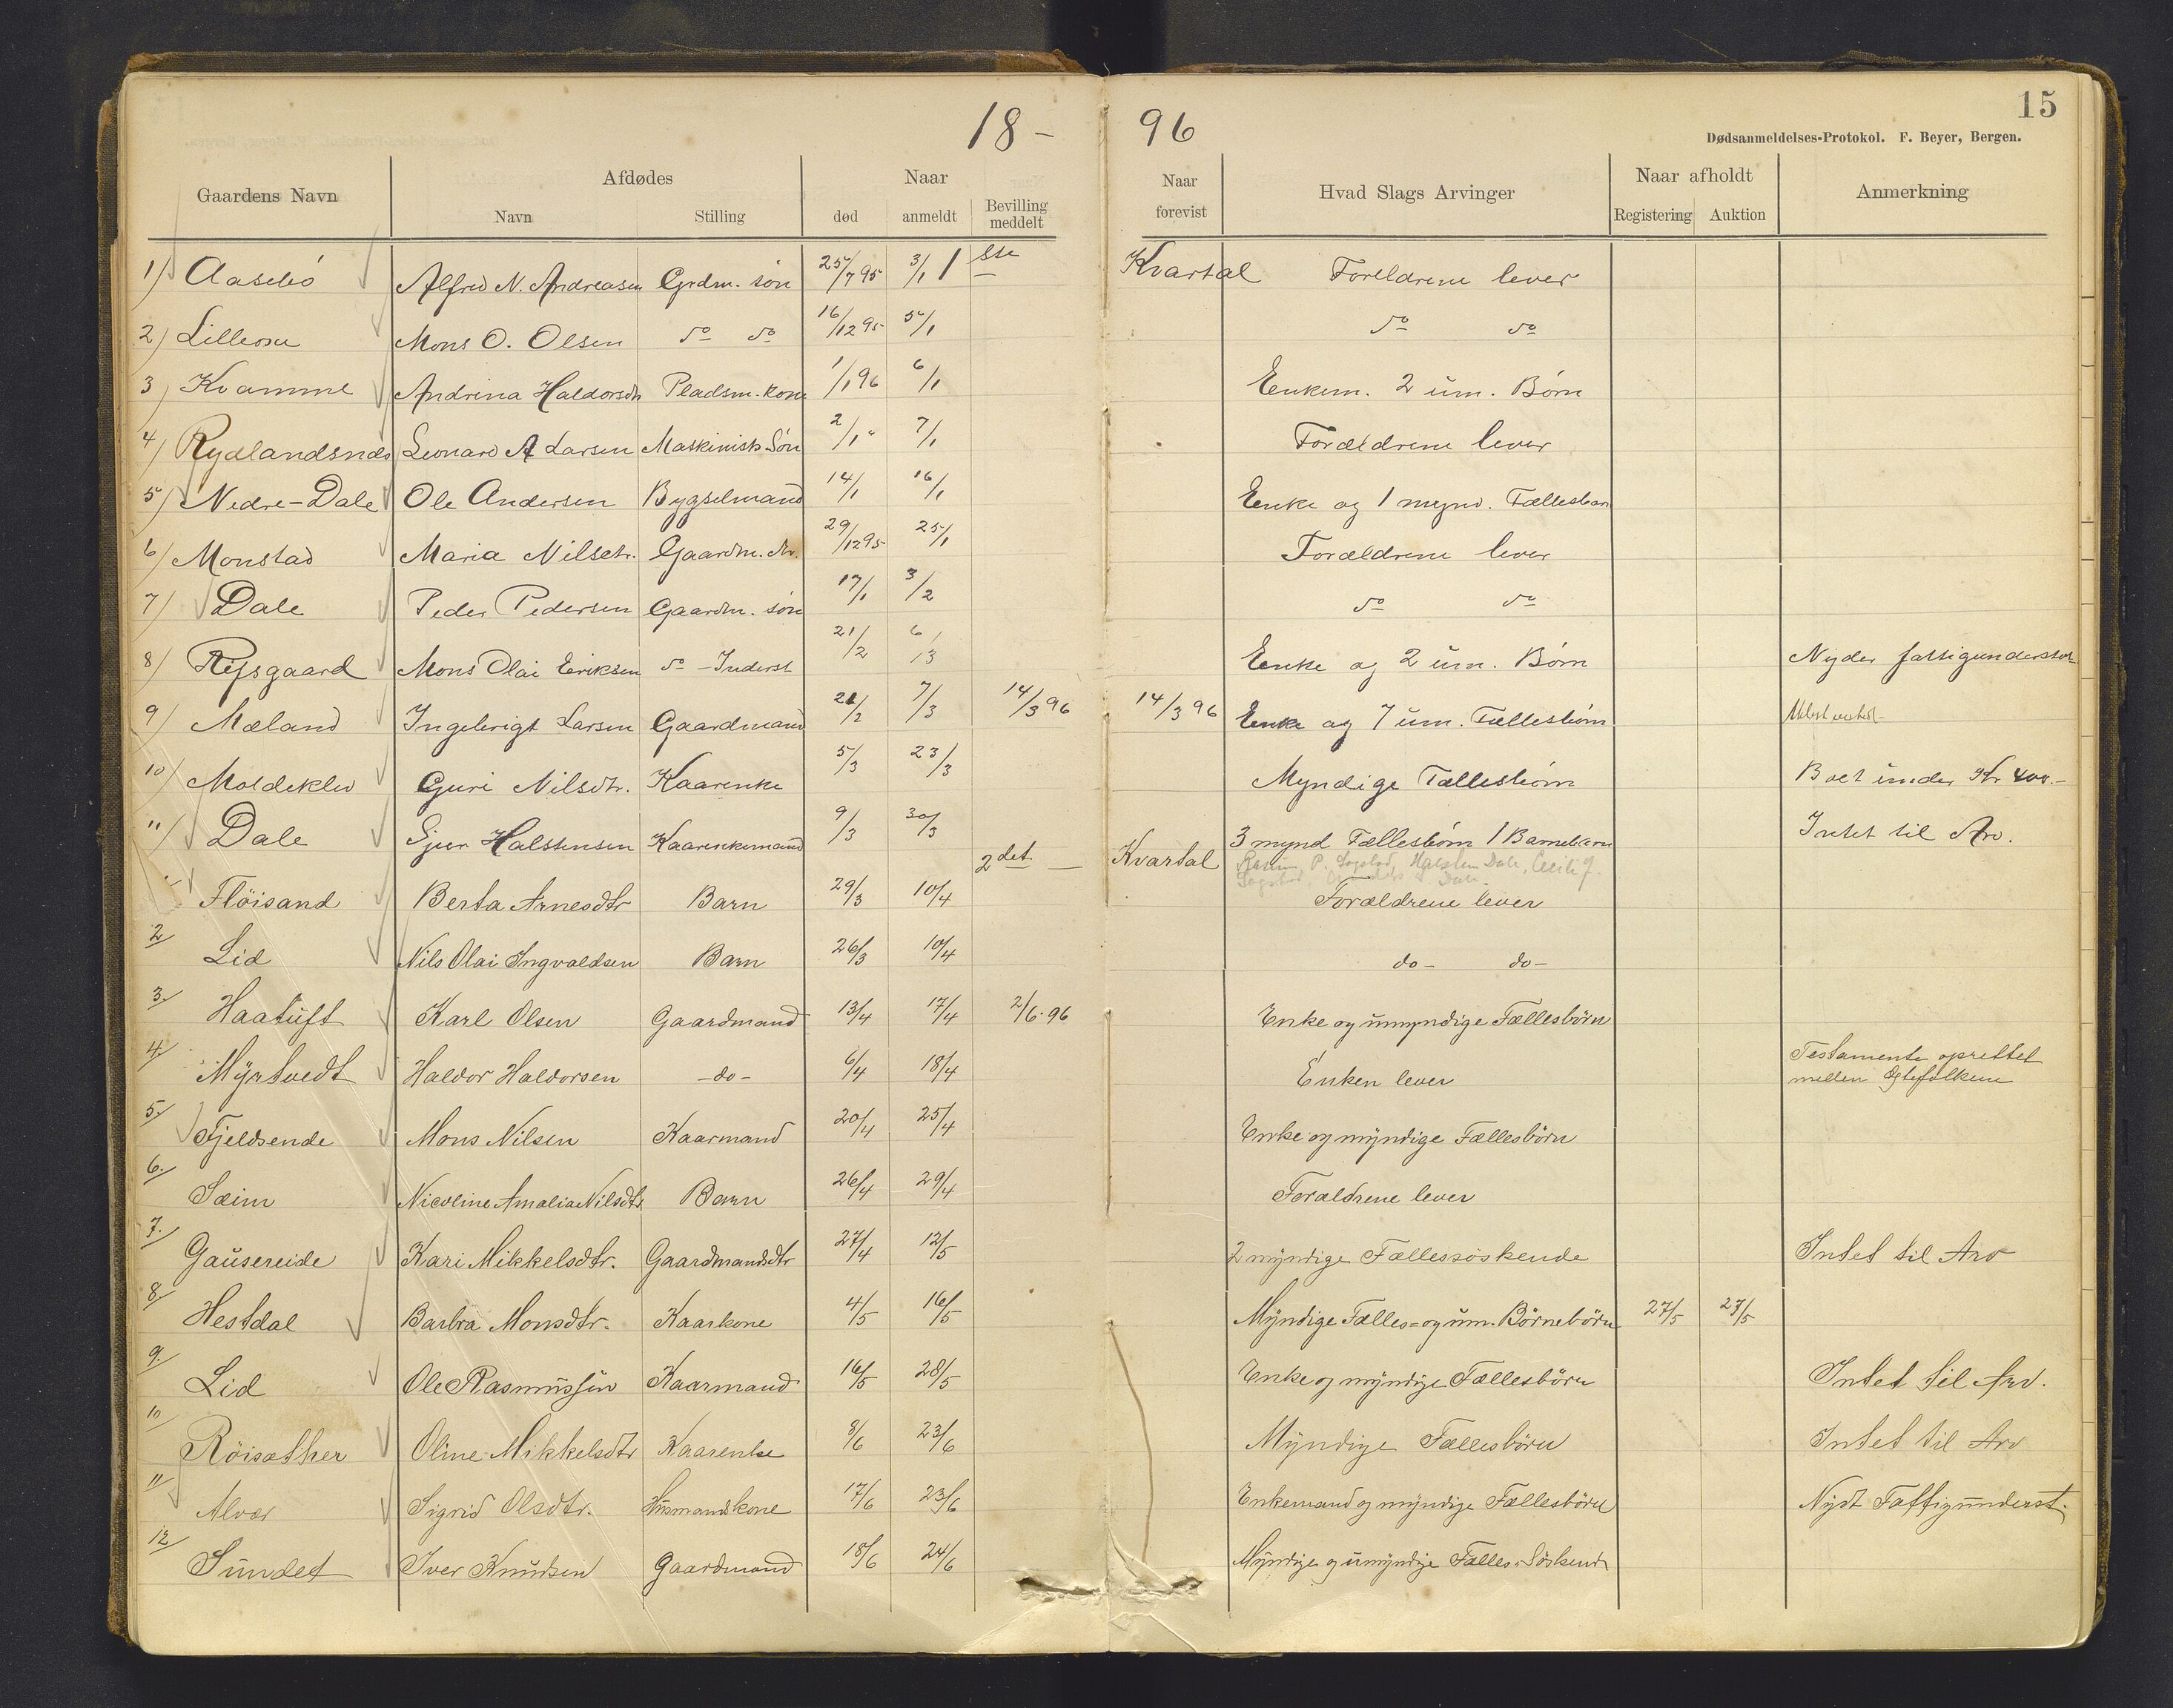 18 - 96
15
Dødsanmeldelses-Protokol. F. Beyer, Bergen.
Gaardens Navn | Afdødes Navn | Stilling | Naar død | anmeldt | Bevilling meddelt | Naar forevist | Hvad Slags Arvinger | Naar afholdt Registering | Auktion | Anmerkning
1ste Kvartal
1) Aasebö | Alfred N. Andreasen | Grdm. sön | 25/7 95 | 3/1 | Foreldrene lever
2) Lilleose | Mons O. Olsen | do do | 16/12 95 | 5/1 | do do
3) Kvamme | Andrina Haldorsdtr | Pladsm. kone | 1/1 96 | 6/1 | Enkem. 2 um. Börn
4) Rydlandsnæs | Leonard A Larsen | Maskinists Sön | 2/1 " | 7/1 | Forældrene lever
5) Nedre-Dale | Ole Andersen | Bygselmand | 14/1 | 16/1 | Enke og 1 mynd. Fællesbarn
6) Monstad | Maria Nilsdtr. | Gaardm. dtr. | 29/12 95 | 25/1 | Forældrene lever
7) Dale | Peder Pedersen | Gaardm. sön | 17/1 | 3/2 | do do
8) Refsgaard | Mons Olai Eriksen | do - Inderst | 21/2 | 6/3 | Enke og 2 um. Börn | Nyder fattigunderstöt.
9) Mæland | Ingebrigt Larsen | Gaardmand | 21/2 | 7/3 | 14/3 96 | 14/3 96 | Enke og 7 um. Fællesbörn
10) Moldeklev | Guri Nilsdtr. | Kaarenke | 5/3 | 23/3 | Myndige Fællesbörn | Boet under Kr 400.-
11) Dale | Gjer Halstensen | Kaarenkemand | 9/3 | 30/3 | 3 mynd Fællesbörn 1 Barnebarn | Intet til Arv.
2det Kvartal
Flöisand | Berta Arnesdtr | Barn | 29/3 | 10/4 | Forældrene lever
2/ Lid | Nils Olai Ingvaldsen | Barn | 26/3 | 10/4 | do- do-
3/ Haatuft | Karl Olsen | Gaardmand | 13/4 | 17/4 | 2/6.96 | Enke og umyndige Fællesbörn
4/ Myrtvedt | Haldor Haldorsen | -do- | 6/4 | 18/4 | Enken lever | Testamente oprettet mellem Egtefolkene
5/ Fjeldsende | Mons Nilsen | Kaarmand | 20/4 | 25/4 | Enke og myndige Fællesbörn
6./ Sæim | Nicoline Amalia Nilsdtr | Barn | 26/4 | 29/4 | Forældrene lever
7./ Gausereide | Kari Mikkelsdtr. | Gaardmandsdtr | 27/4 | 12/5 | 2 myndige Fællessöskende | Intet til Arv
8/ Hestdal | Barbra Monsdtr. | Kaarkone | 4/5 | 16/5 | Myndige Fælles= og um. Börnebörn | 27/5 | 27/5
9./ Lid | Ole Rasmussen | Kaarmand | 16/5 | 28/5 | Enke og myndige Fællesbörn | Intet til Arv.
10/ Röisæther | Oline Mikkelsdtr | Kaarenke | 8/6 | 23/6 | Myndige Fællesbörn | Intet til Arv
11/ Alvær | Sigrid Olsdtr. | Husmandskone | 17/6 | 23/6 | Enkemand og myndige Fællesbörn | Nydt Fattigunderst.
12/ Sundet | Iver Knudsen | Gaardmand | 18/6 | 24/6 | Myndige og umyndige Fælles-Söskende